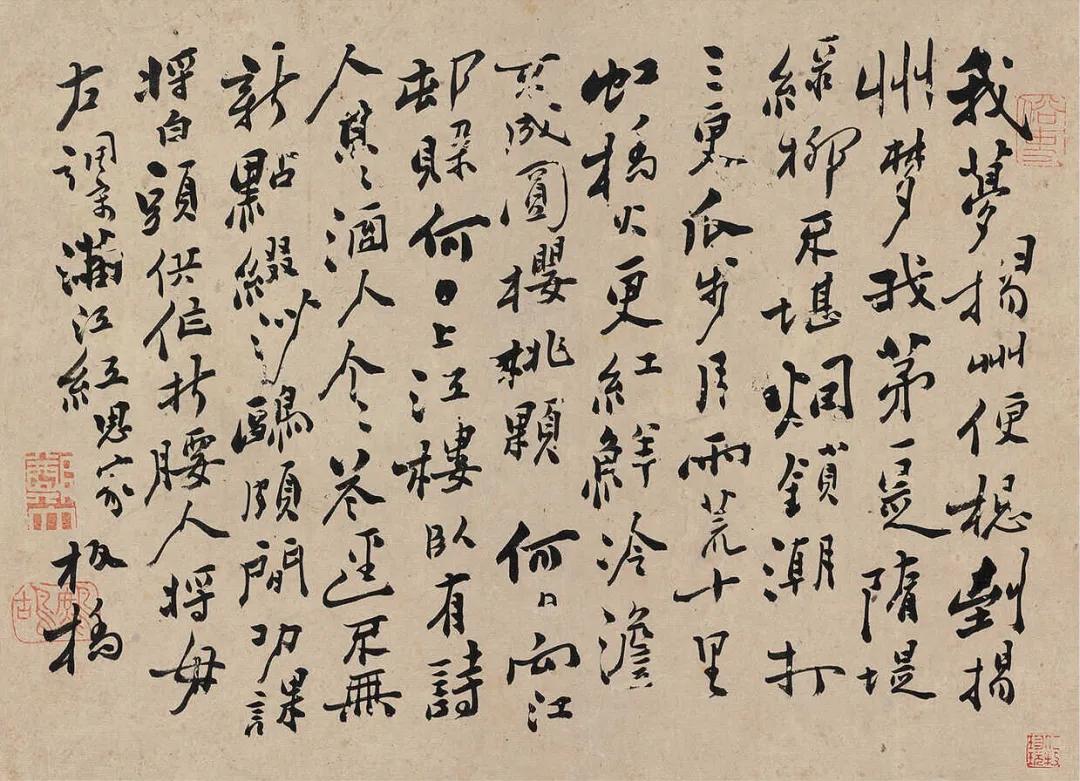 我夢揚州便想到揚
州夢我第一是隋堤
綠柳不堪烟鎖潮打
三更瓜步月雨荒十里
虹橋火更紅鮮冷澹
不成圓櫻桃顆 何日向江
邨躲何日上江樓臥有詩
人某〻酒人个〻花逕不無
新點綴沙鷗頗閒功課
將白頭供作折腰人將毋
左 調寄滿江紅思家 板橋
俗吏
鄭燮